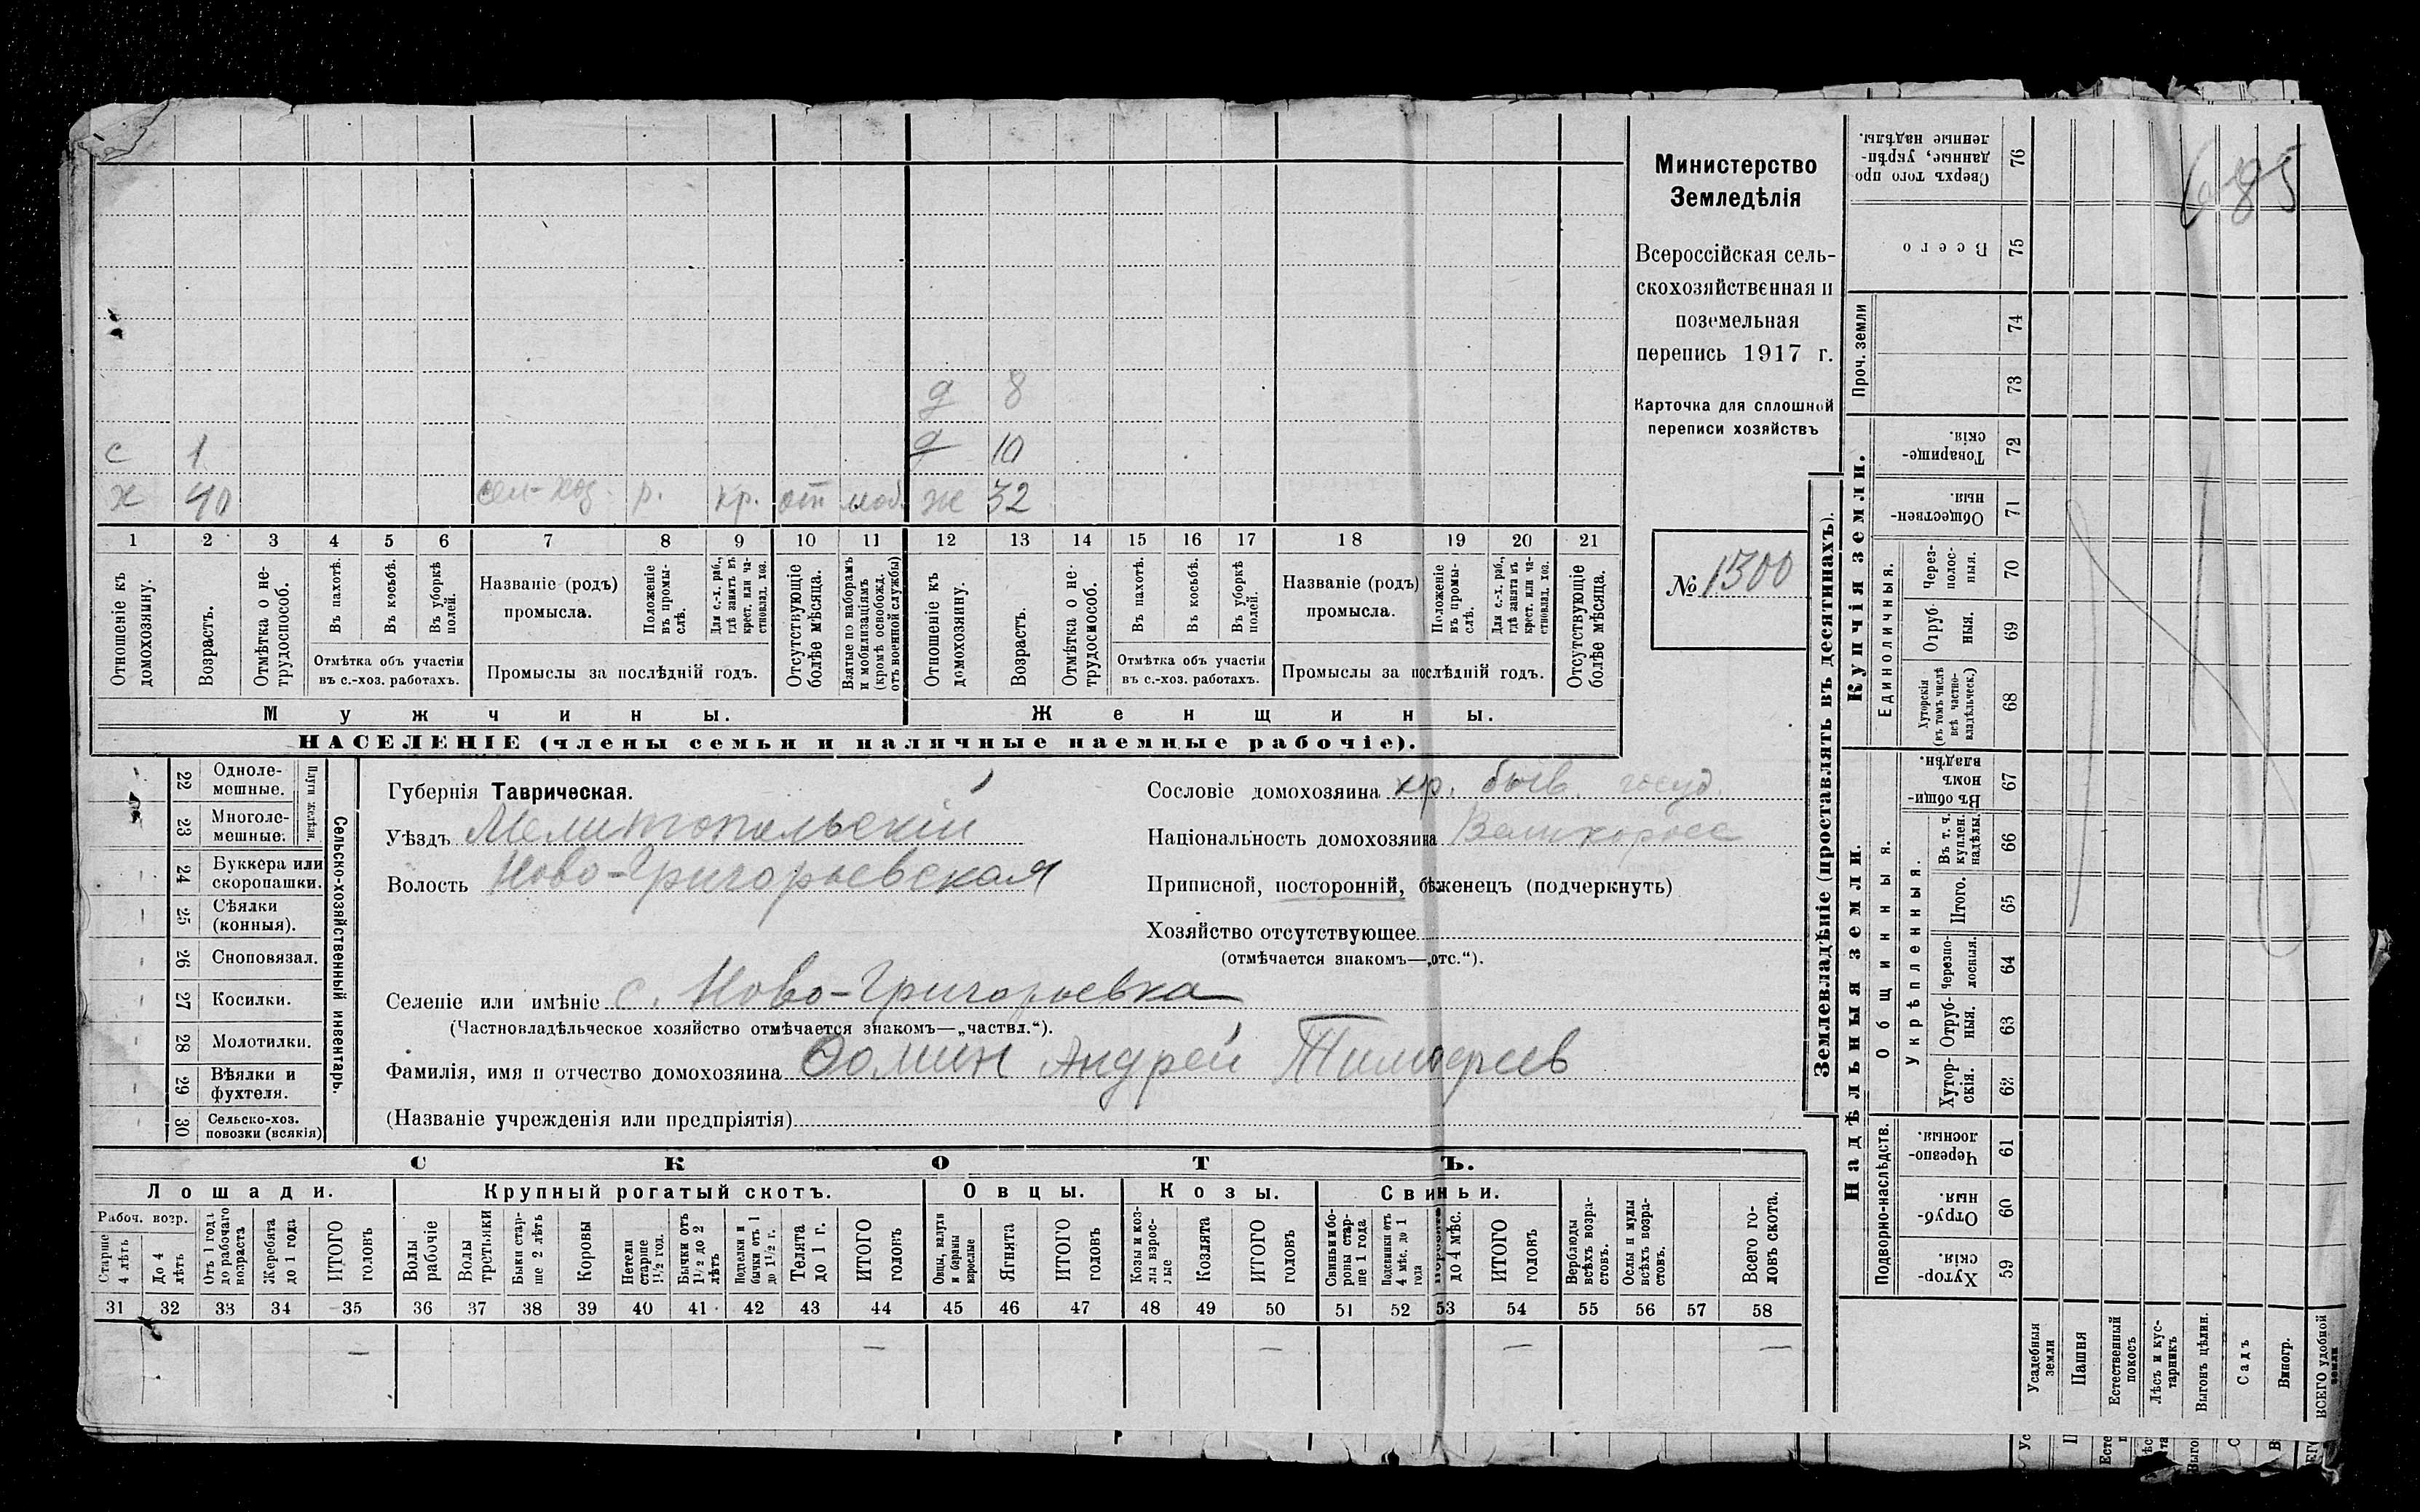 Министерство
Земледѣлія
Всероссійская сель-
скохозяйственная и
поземельная
перепись 1917 г.
Карточка для сплошной
переписи хозяйствъ
№ 1300
685
д 8
с 1 д 10
х 40 сел-хоз. р. кр. от моб. ж 32
1 2 3 4 5 6 7 8 9 10 11 12 13 14 15 16 17 18 19 20 21
Отношеніе къ домохозяину.
Возрастъ.
Отмѣтка о не-трудоспособ.
Въ пахотѣ.
Въ косьбѣ.
Въ уборкѣ полей.
Отмѣтка объ участіи
въ с.-хоз. работахъ.
Названіе (родъ)
промысла.
Положеніе въ промы-слѣ.
Для с.-х. раб., гдѣ занятъ въ крест. или ча-стновлад. хоз.
Промыслы за послѣдній годъ.
Отсутствующіе болѣе мѣсяца.
Взятые по наборамъ и мобилизаціямъ (кромѣ освобожд. отъ военной службы)
Отношеніе къ домохозяину.
Возрастъ.
Отмѣтка о не-трудоспособ.
Въ пахотѣ.
Въ косьбѣ.
Въ уборкѣ полей.
Отмѣтка объ участіи
въ с.-хоз. работахъ.
Названіе (родъ)
промысла.
Положеніе въ промы-слѣ.
Для с.-х. раб., гдѣ занята въ крест. или ча-стновлад. хоз.
Промыслы за послѣдній годъ.
Отсутствующіе болѣе мѣсяца.
Мужчины. Женщины.
НАСЕЛЕНІЕ (члены семьи и наличные наемные рабочіе).
Сельско-хозяйственный инвентарь.
Плуги желѣзн.
22 Одноле-
мешные.
23 Многоле-
мешные.
24 Буккера или
скоропашки.
25 Сѣялки
(конныя).
26 Сноповязал.
27 Косилки.
28 Молотилки.
29 Вѣялки и
фухтеля.
30 Сельско-хоз.
повозки (всякія)
Губернія Таврическая.
Уѣздъ Мелитопольскій
Волость Ново-Григорьевская
Сословіе домохозяина кр. быв. госуд.
Національность домохозяина Великоросс
Приписной, посторонній, бѣженецъ (подчеркнуть)
Хозяйство отсутствующее
(отмѣчается знакомъ—„отс.“).
Селеніе или имѣніе с. Ново-Григорьевка
(Частновладѣльческое хозяйство отмѣчается знакомъ—„частвл.“).
Фамилія, имя и отчество домохозяина Фомин Андрей Тимофеев
(Названіе учрежденія или предпріятія)
СКОТЪ.
Лошади. Крупный рогатый скотъ. Овцы. Козы. Свиньи.
Рабоч. возр.
Старше 4 лѣтъ
До 4 лѣтъ
Отъ 1 года до рабочаго возраста
Жеребята до 1 года
ИТОГО головъ
Волы рабочіе
Волы третьяки
Быки стар-ше 2 лѣтъ
Коровы
Нетели старше 1½ год.
Бычки отъ 1½ до 2 лѣтъ
Подтелки и бычки отъ 1 до 1½ г.
Телята до 1 г.
ИТОГО головъ
Овцы, валухи и бараны взрослые
Ягнята
ИТОГО головъ
Козы и коз-лы взрос-лые
Козлята
ИТОГО головъ
Свиньи и бо-ровы стар-ше 1 года
Подсвинки отъ 4 мѣс. до 1 года
Поросята до 4 мѣс.
ИТОГО головъ
Верблюды всѣхъ возра-стовъ.
Ослы и мулы всѣхъ возра-стовъ.
Всего го-ловъ скота.
31 32 33 34 35 36 37 38 39 40 41 42 43 44 45 46 47 48 49 50 51 52 53 54 55 56 57 58
— — — — —
Землевладѣніе (проставлять въ десятинахъ).
Надѣльныя земли. Купчія земли.
Проч. земли
Подворно-наслѣдств.
Общинныя.
Укрѣпленныя.
Единоличныя.
Сверхъ того про-данные, укрѣп-ленные надѣлы. 76
Всего 75
74
73
Товарище-скія 72
Обществен-ныя 71
Через-полос-ныя. 70
Отруб-ныя. 69
Хуторскія (въ томъ числѣ всѣ частно-владѣльческ.) 68
Въ общин-номъ владѣн. 67
Въ т. ч. куплен. надѣлы. 66
Итого. 65
Черезпо-лосныя. 64
Отруб-ныя. 63
Хутор-скія. 62
Черезпо-лосныя. 61
Отруб-ныя. 60
Хутор-скія. 59
Усадебныя земли
Пашня
Естественный покосъ
Лѣсъ и кус-тарникъ
Выгонъ цѣлин.
Садъ
Виногр.
ВСЕГО удобной земли